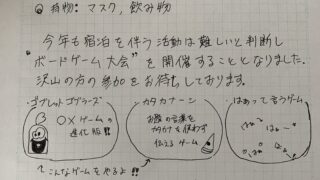 持物：マスク, 飲み物
今年も宿泊を伴う活動は難しいと判断し
"ボードゲーム大会"を開催することとなりました。
沢山の方の参加をお待ちしております。
ゴブレットゴブラーズ
○×ゲームの
進化版!!
カタカナーシ
お題の言葉を
カタカナを使わず
伝えるゲーム
はぁって言うゲーム
はぁ〜
はぁ
はぁ
↑こんなゲームをやるよ!!